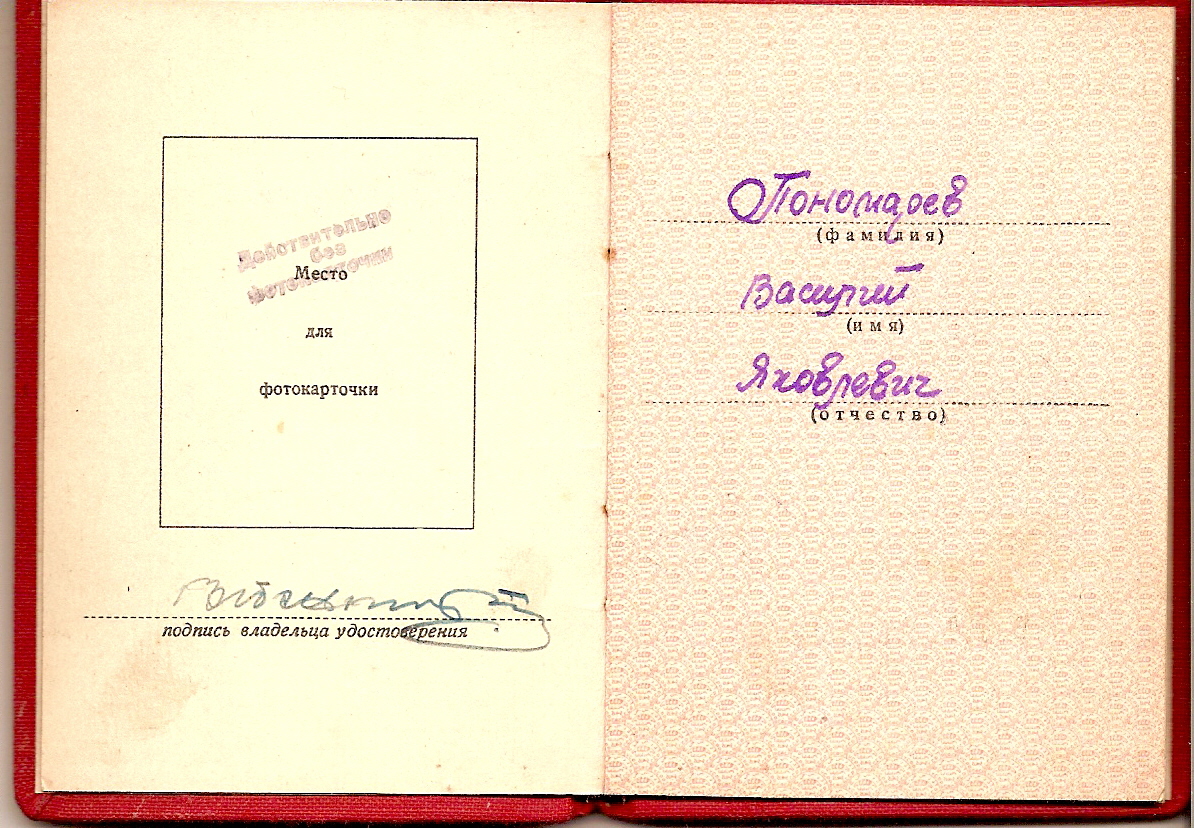 Действительно
без
фотокарточки
Место
для
фотокарточки
подпись владельца удостоверения
Пономарев
(фамилия)
Василий
(имя)
Яковлевич
(отчество)